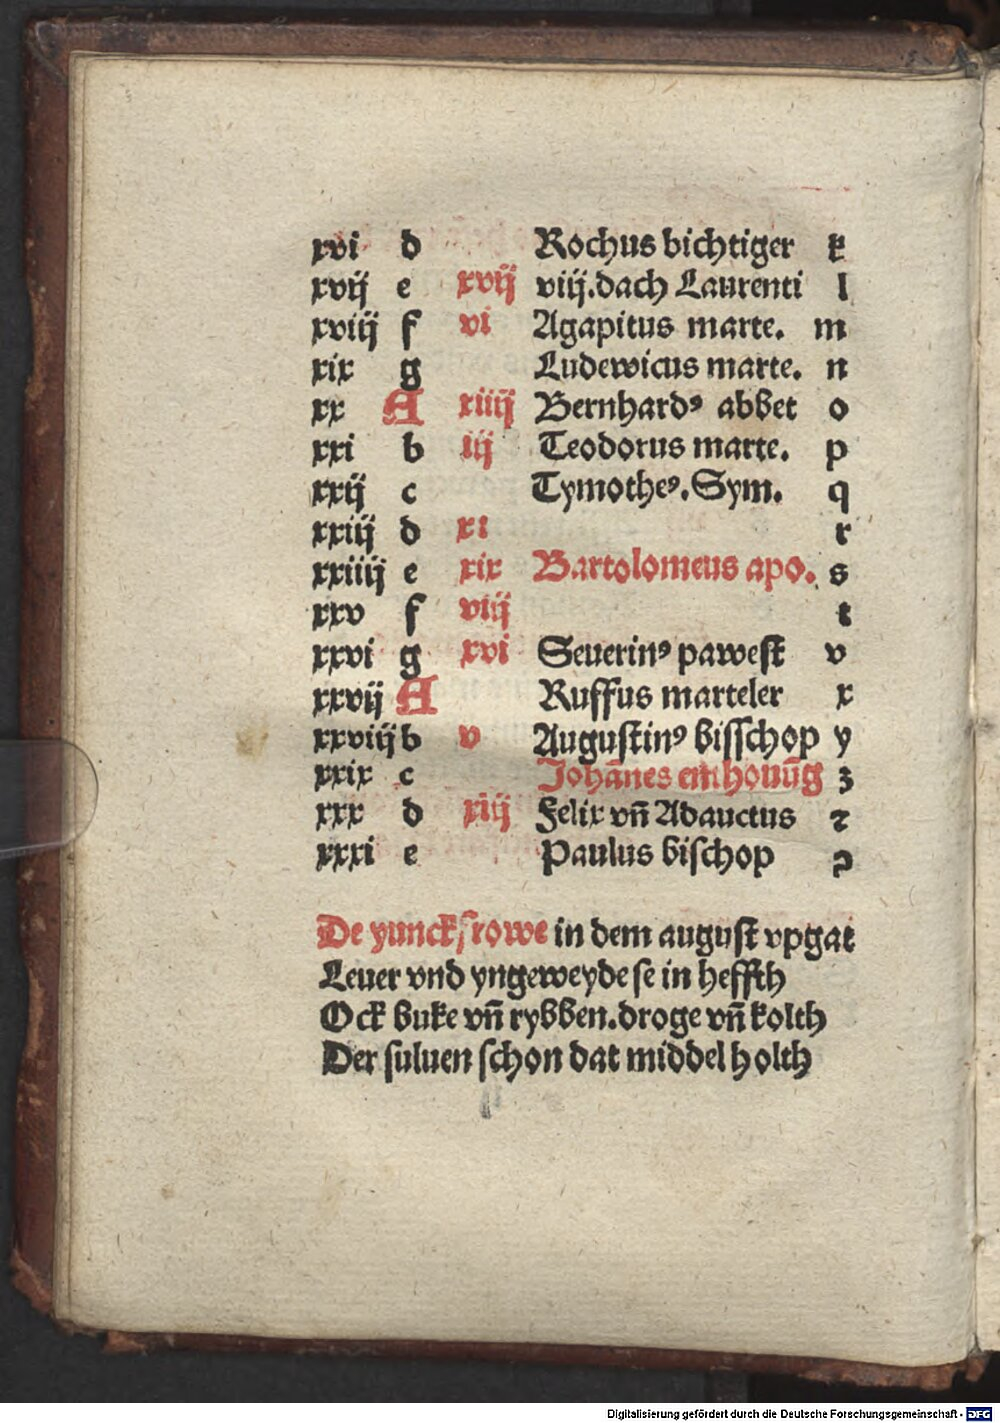 xvi d Rochus bichtiger k
xvij e xvij viij.dach Laurenti l
xviij f vi Agapitus marte. m
xix g Ludewicus marte. n
xx A xiiij Bernhardꝰ abbet o
xxi b iij Teodorus marte. p
xxij c Tymotheꝰ. Sym. q
xxiij d xi r
xxiiij e xix Bartolomeus apo. s
xxv f viij t
xxvi g xvi Seuerinꝰ pawest v
xxvij A Ruffus marteler x
xxviij b v Augustinꝰ bisschop y
xxix c Johānes enthouūg z
xxx d xiij Felix vn̄ Adauctus ꝛ
xxxi e Paulus bischop ꝯ
De yunckfrowe in dem august vpgat
Leuer vnd yngeweyde se in heffth
Ock buke vn̄ rybben. droge vn̄ kolth
Der suluen schon dat middel holth
Digitalisierung gefördert durch die Deutsche Forschungsgemeinschaft - DFG